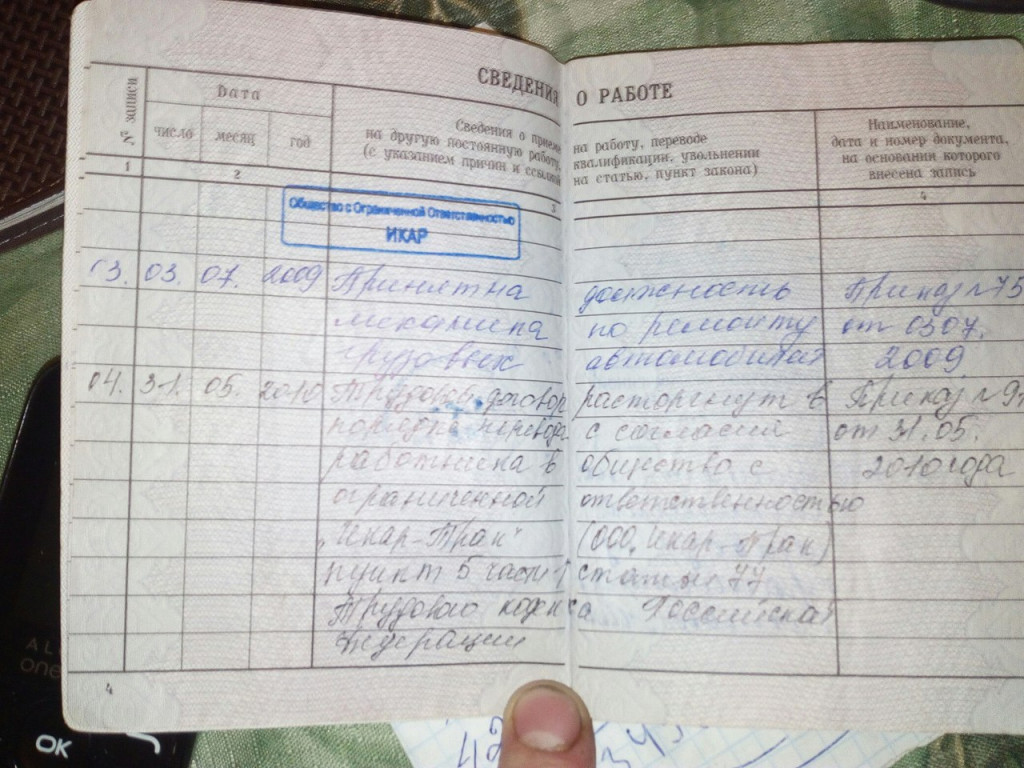 СВЕДЕНИЯ О РАБОТЕ
№ записи
Дата
число
месяц
год
Сведения о приеме на работу, переводе
на другую постоянную работу, квалификации, увольнении
(с указанием причин и ссылкой на статью, пункт закона)
Наименование,
дата и номер документа,
на основании которого
внесена запись
1
2
3
4
Общество с Ограниченной Ответственностью
ИКАР
03. 03. 07. 2009 Принят на должность Приказ №75
механика по ремонту от 0307.
грузовых автомобилей 2009
04. 31. 05. 2010 Трудовой договор расторгнут в Приказ №9
порядке перевода с согласия от 31.05.
работника в общество с 2010 года
ограниченной ответственностью
"Икар-Трак" (ООО "Икар-Трак)
пункт 5 части 1 статьи 77
Трудового кодекса Российской
Федерации
4
OK